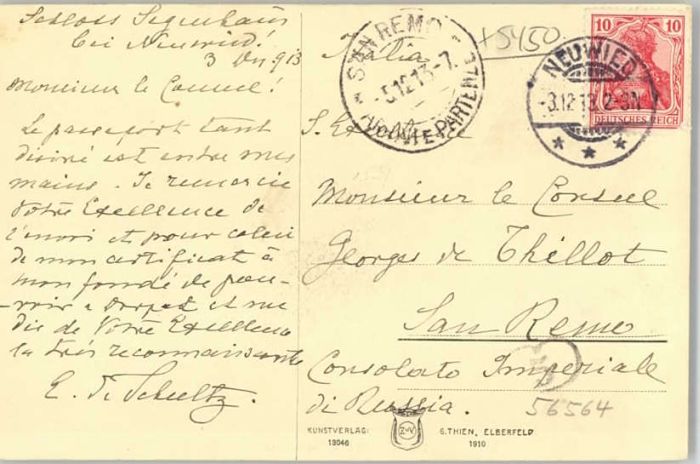 Schloss Segenhaus
bei Neuwied!
3 Dez 913
Monsieur le Consul!
Le passeport tant
désiré est entre mes
mains. Je remercie
Votre Excellence de
l'envoi et pour celui
de mon certificat à
mon fondé de pou-
-voir à Dorpat et me
dis de Votre Excellence
la très reconnaissante
E. de Schultz.
Italia
SAN REMO
5.12.13-7.
PARTENZE
+5450
10 10
DEUTSCHES REICH
NEUWIED
-3.12.13.2-3N.
* * *
Monsieur le Consul
Georges de Thillot
San Remo
Consolato Imperiale
di Russia.
56564
KUNSTVERLAG: G. THIEN, ELBERFELD
19046 1910